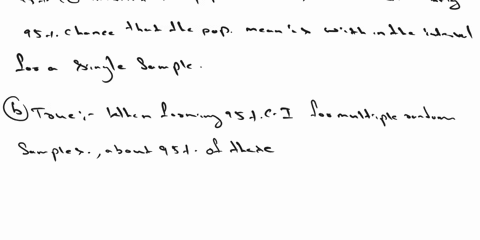 95%. chance that the pop. mean is with in the interval
for a single sample.
(b) True:- When forming 95%. C-I for multiple random
Samples., about 95%. of these